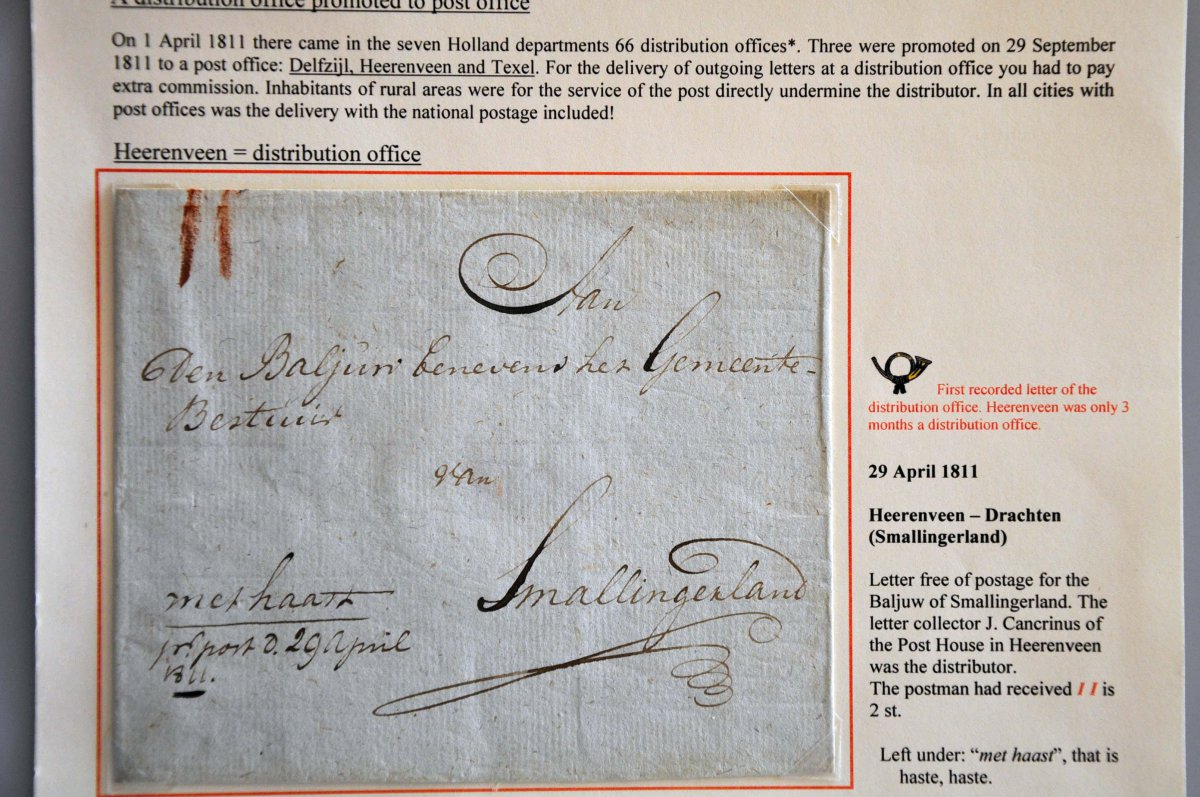 A distribution office promoted to post office
On 1 April 1811 there came in the seven Holland departments 66 distribution offices*. Three were promoted on 29 September
1811 to a post office: Delfzijl, Heerenveen and Texel. For the delivery of outgoing letters at a distribution office you had to pay
extra commission. Inhabitants of rural areas were for the service of the post directly undermine the distributor. In all cities with
post offices was the delivery with the national postage included!
Heerenveen = distribution office
II
Aan
Den Baljuw benevens het Gemeente-
Bestuur
van
Smallingerland
met haast
pr post d. 29 April
1811.
First recorded letter of the
distribution office. Heerenveen was only 3
months a distribution office.
29 April 1811
Heerenveen – Drachten
(Smallingerland)
Letter free of postage for the
Baljuw of Smallingerland. The
letter collector J. Cancrinus of
the Post House in Heerenveen
was the distributor.
The postman had received I I is
2 st.
Left under: “met haast”, that is
haste, haste.